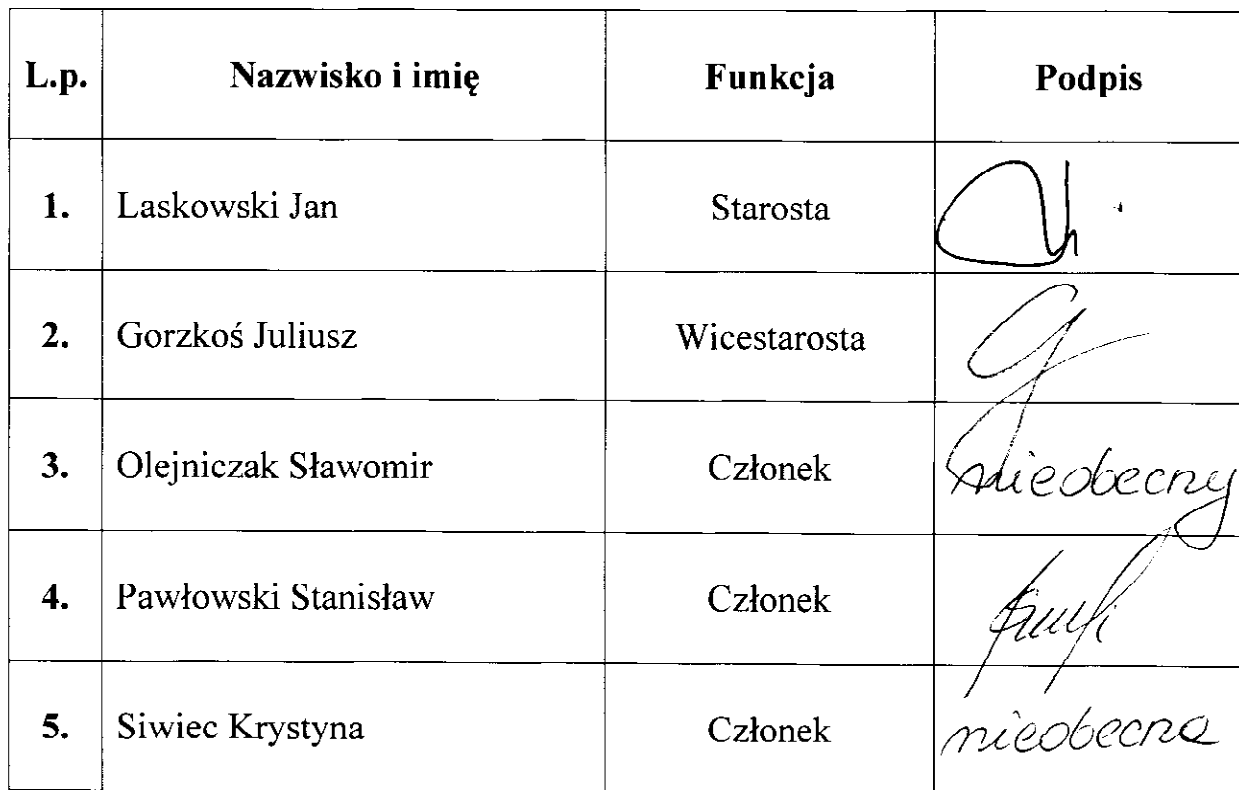 L.p. Nazwisko i imię Funkcja Podpis
1. Laskowski Jan Starosta
2. Gorzkoś Juliusz Wicestarosta
3. Olejniczak Sławomir Członek nieobecny
4. Pawłowski Stanisław Członek
5. Siwiec Krystyna Członek nieobecna